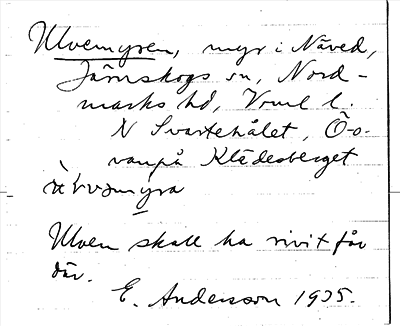 Ulvemyren, myr i Näved,
Järnskogs sn, Nord-
marks hd, Vrml l.
N Svartehålet, Ö o.
vanpå Klädesberget
Ulven skall ha rivit får
där.
E. Andersson 1935.